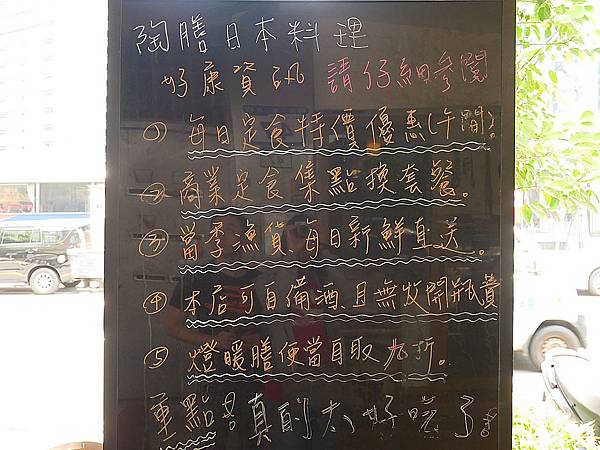 陶膳日本料理
好康資訊 請仔細參閱
① 每日定食特價優惠(午間)。
② 商業定食集點換套餐。
③ 當季漁貨每日新鮮直送。
④ 本店可自備酒、且無收開瓶費
⑤ 燈暖膳便當自取九折。
重點是真的太好吃了